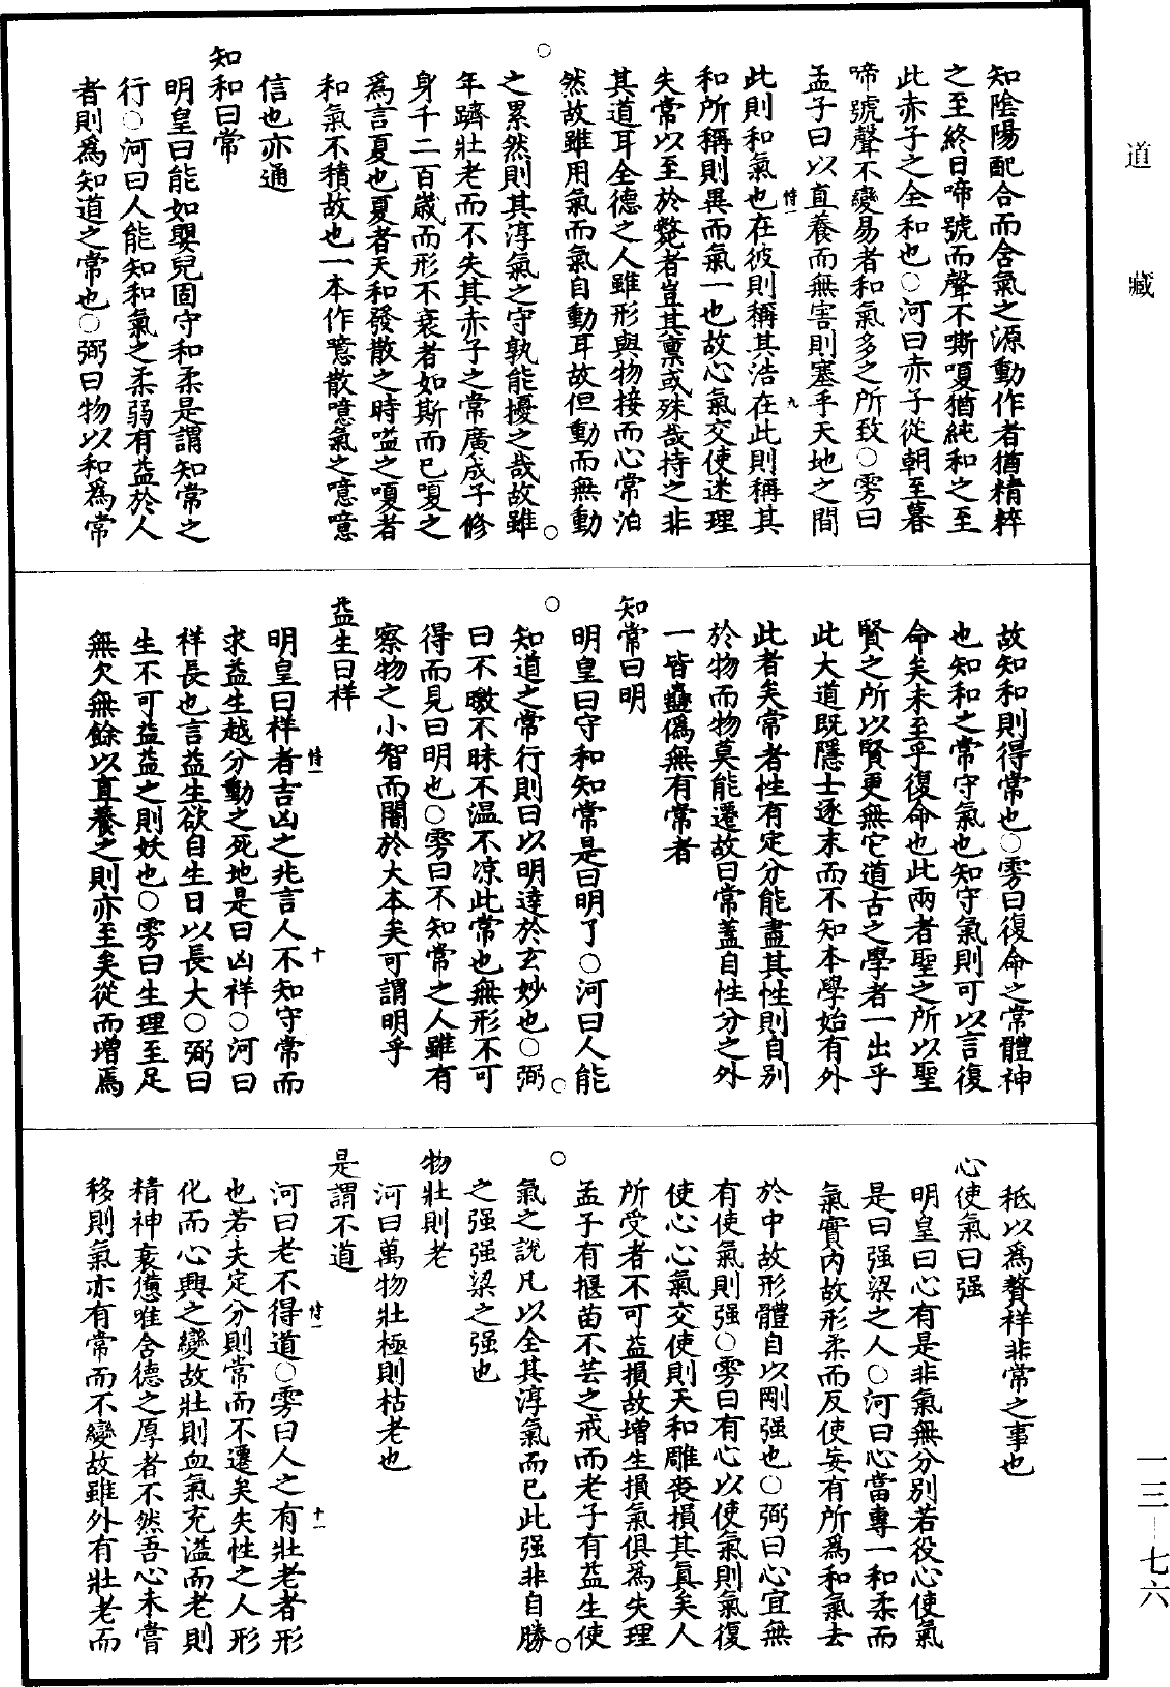 道藏
知陰陽配合而含氣之源動作者猶精粹
之至終日啼號而聲不嘶嗄猶純和之至
此赤子之全和也○河曰赤子從朝至暮
啼號聲不變易者和氣多之所致○雱曰
孟子曰以直養而無害則塞乎天地之間
此則和氣也在彼則稱其浩在此則稱其
恃一
九
和所稱則異而氣一也故心氣交使迷理
失常以至於斃者豈其稟或殊哉持之非
其道耳全德之人雖形與物接而心常泊
然故雖用氣而氣自動耳故但動而無動
○
○
之累然則其淳氣之守孰能擾之哉故雖
年躋壯老而不失其赤子之常廣成子修
身千二百歲而形不衰者如斯而已嗄之
爲言夏也夏者天和發散之時嗌之嗄者
和氣不積故也一本作噫散噫氣之噫噫
信也亦通
知和曰常
明皇曰能如嬰兒固守和柔是謂知常之
行○河曰人能知和氣之柔弱有益於人
者則爲知道之常也○弼曰物以和爲常
故知和則得常也○雱曰復命之常體神
也知和之常守氣也知守氣則可以言復
命矣未至乎復命也此兩者聖之所以聖
賢之所以賢更無它道古之學者一出乎
此大道既隱士逐末而不知本學始有外
此者矣常者性有定分能盡其性則自別
於物而物莫能遷故曰常蓋自性分之外
一皆蠱僞無有常者
知常曰明
明皇曰守和知常是曰明了○河曰人能
○
○
知道之常行則曰以明達於玄妙也○弼
曰不曒不昧不温不凉此常也無形不可
得而見曰明也○雱曰不知常之人雖有
察物之小智而闇於大本矣可謂明乎
益生曰祥
明皇曰祥者吉凶之兆言人不知守常而
恃一
十
求益生越分動之死地是曰凶祥○河曰
祥長也言益生欲自生日以長大○弼曰
生不可益益之則妖也○雱曰生理至足
無欠無餘以直養之則亦至矣從而增焉
秖以爲贅祥非常之事也
心使氣曰强
明皇曰心有是非氣無分別若役心使氣
是曰强梁之人○河曰心當專一和柔而
氣實内故形柔而反使妄有所爲和氣去
於中故形體自以剛强也○弼曰心宜無
有使氣則强○雱曰有心以使氣則氣復
使心心氣交使則天和雕喪損其眞矣人
所受者不可益損故增生損氣俱爲失理
孟子有揠苗不芸之戒而老子有益生使
○
○
氣之說凡以全其淳氣而已此强非自勝
之强强梁之强也
物壯則老
河曰萬物壯極則枯老也
是謂不道
河曰老不得道○雱曰人之有壯老者形
恃一
十一
也若夫定分則常而不遷矣失性之人形
化而心與之變故壯則血氣充溢而老則
精神衰憊唯含德之厚者不然吾心未嘗
移則氣亦有常而不變故雖外有壯老而
一三—七六